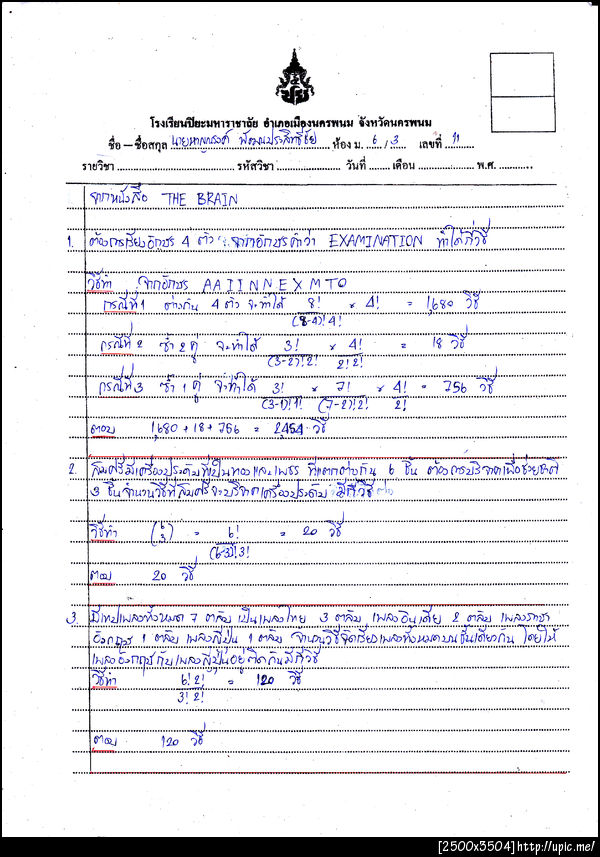 โรงเรียนปิยะมหาราชาลัย อำเภอเมืองนครพนม จังหวัดนครพนม
ชื่อ – ชื่อสกุล นาย พัฒนประสิทธิ์ชัย ห้อง ม. 6 / 3 เลขที่ 11
รายวิชา รหัสวิชา วันที่ เดือน พ.ศ.
จากหนังสือ THE BRAIN
1. ต้องการเรียงอักษร 4 ตัว จากอักษรคำว่า EXAMINATION ทำได้กี่วิธี
วิธีทำ จากอักษร A A I I N N E X M T O
กรณีที่ 1 ต่างกัน 4 ตัว จะทำได้ 8! × 4! = 1,680 วิธี
(8-4)! 4!
กรณีที่ 2 ซ้ำ 2 คู่ จะทำได้ 3! × 4! = 18 วิธี
(3-2)! 2! 2! 2!
กรณีที่ 3 ซ้ำ 1 คู่ จะทำได้ 3! × 7! × 4! = 756 วิธี
(3-1)! 1! (7-2)! 2! 2!
ตอบ 1,680 + 18 + 756 = 2,454 วิธี
2. สมศรีมีเครื่องประดับที่เป็นทองและเพชร ที่แตกต่างกัน 6 ชิ้น ต้องการบริจาคเพื่อช่วยชาติ
3 ชิ้น จำนวนวิธีที่สมศรีจะบริจาคเครื่องประดับ มีกี่วิธี
วิธีทำ (6 3) = 6! = 20 วิธี
(6-3)! 3!
ตอบ 20 วิธี
3. มีเทปเพลงทั้งหมด 7 ตลับ เป็นเพลงไทย 3 ตลับ เพลงอินเดีย 2 ตลับ เพลงภาษา
อังกฤษ 1 ตลับ เพลงญี่ปุ่น 1 ตลับ จำนวนวิธีจัดเรียงเพลงทั้งหมดบนชั้นเดียวกัน โดยให้
เพลงอังกฤษกับเพลงญี่ปุ่นอยู่ติดกันมีกี่วิธี
วิธีทำ 6! 2! = 120 วิธี
3! 2!
ตอบ 120 วิธี
[2500x3504]http://upic.me/